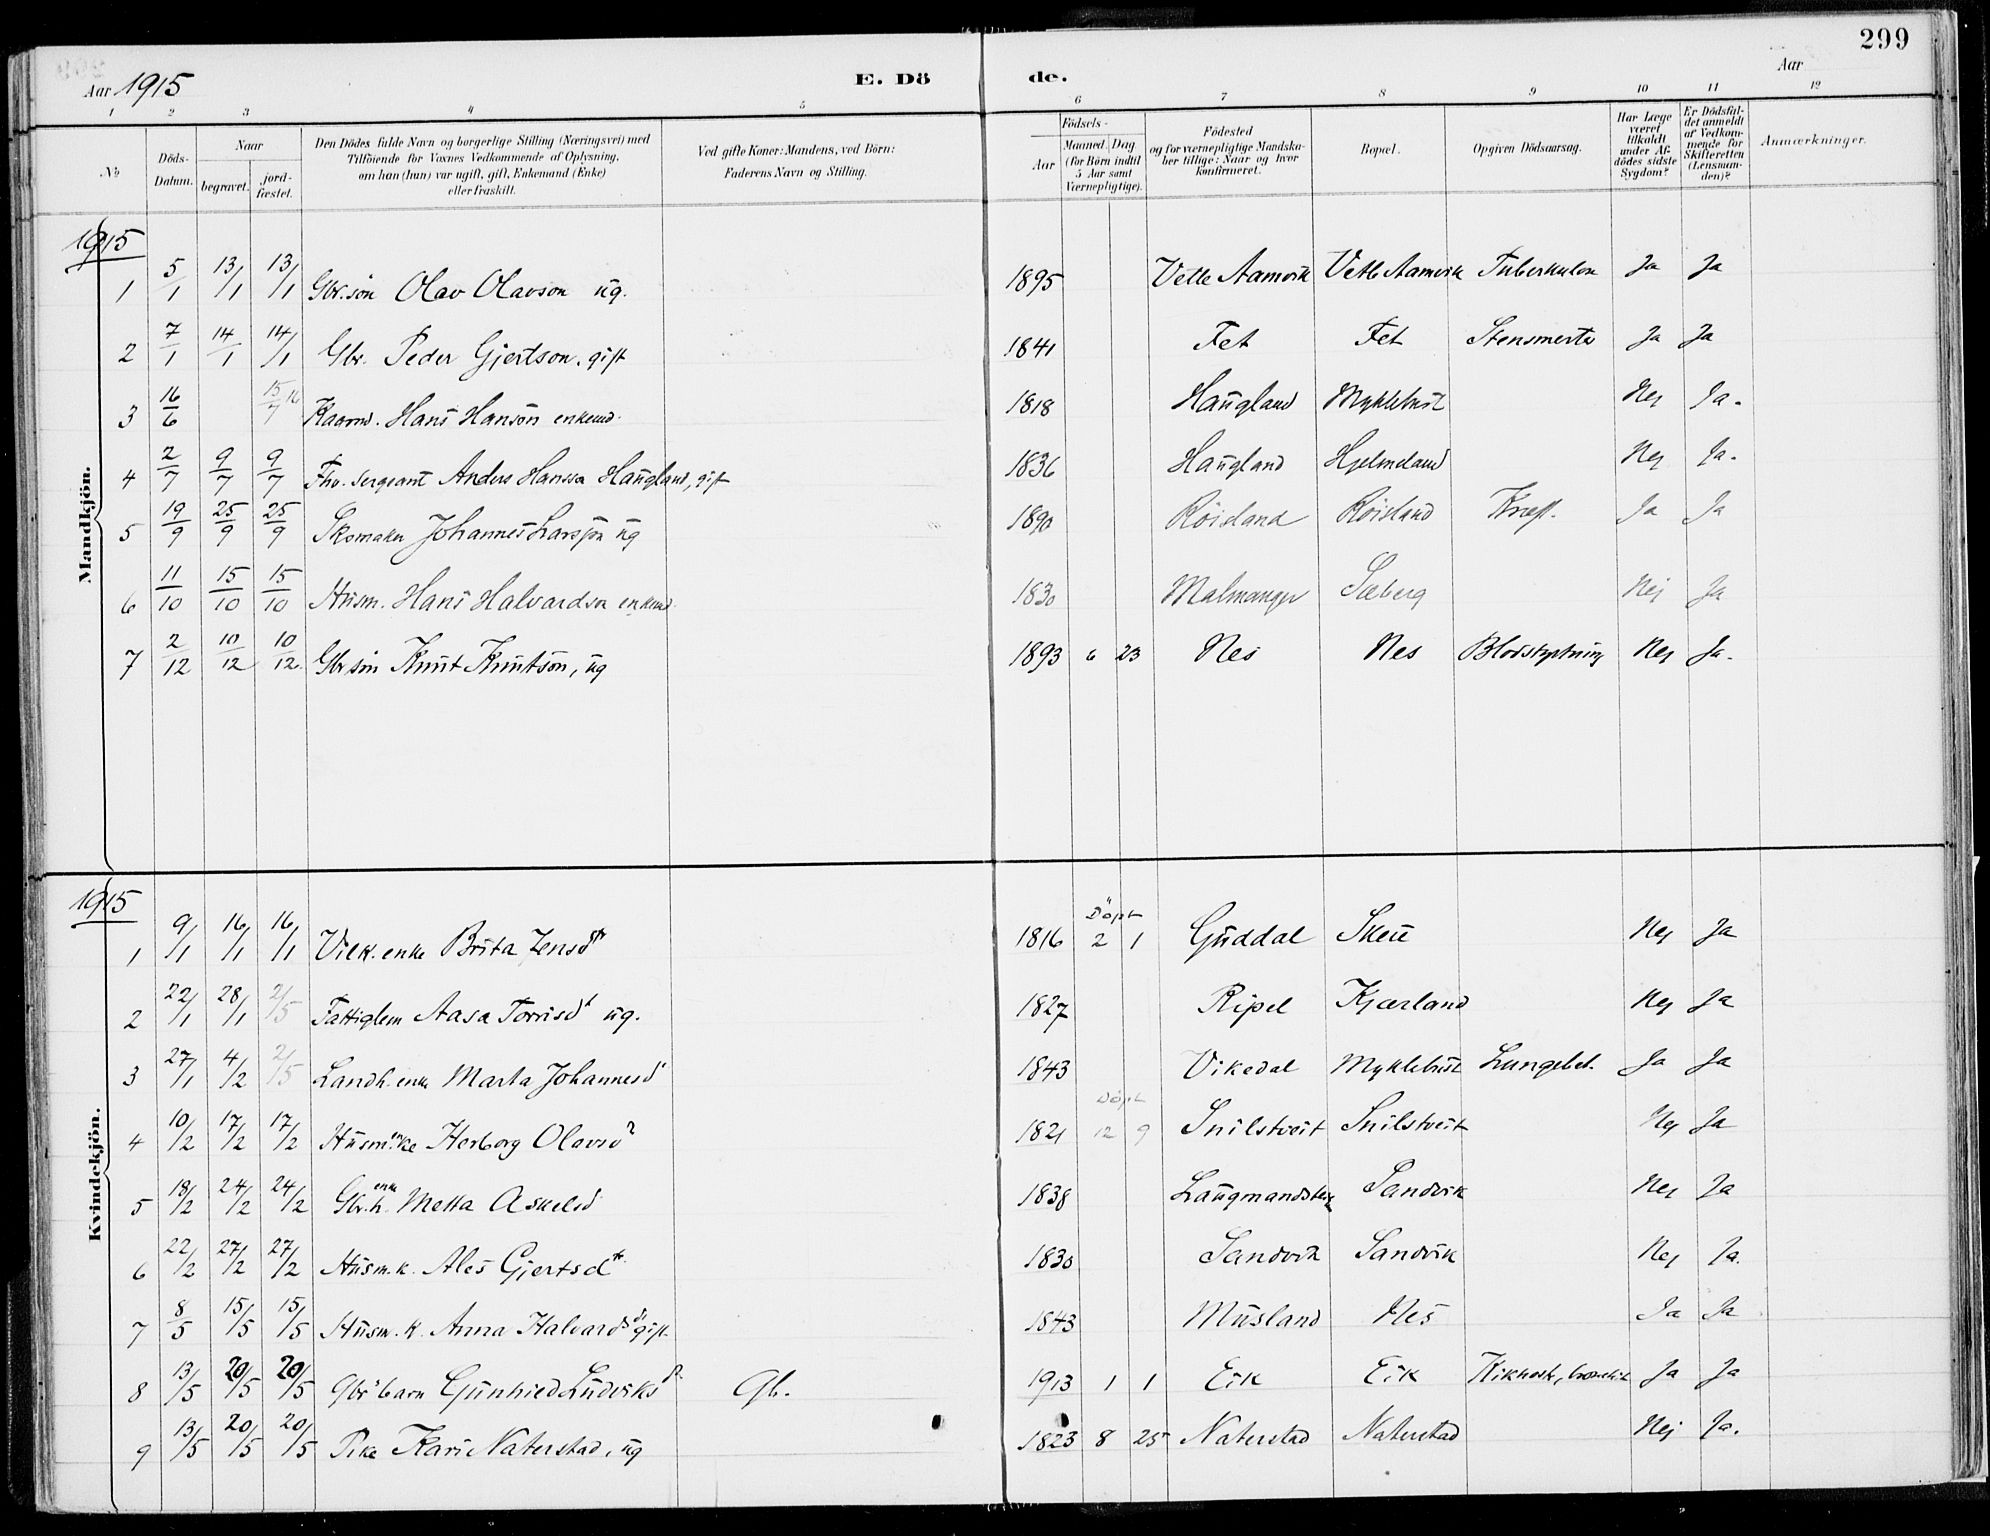 299
Aar 1915 E. Dö de. Aar
1 2 3 4 5 6 7 8 9 10 11 12
No
Döds-Datum.
Naar
begravet.
jord-fæstet.
Den Dödes fulde Navn og borgerlige Stilling (Næringsvei) med
Tilföiende for Voxnes Vedkommende af Oplysning,
om han (hun) var ugift, gift, Enkemand (Enke)
eller fraskilt.
Ved gifte Koner: Mandens, ved Börn:
Faderens Navn og Stilling.
Födsels-
Aar
Maaned. Dag
(for Börn indtil
5 Aar samt
Værnepligtige).
Födested
og for værnepligtige Mandska-
ber tillige: Naar og hvor
konfirmeret.
Bopæl.
Opgiven Dödsaarsag.
Har Læge
været
tilkaldt
under Af-
dödes sidste
Sygdom?
Er Dödsfal-
det anmeldt
af Vedkom-
mende for
Skifteretten
(Lensman-
den)?
Anmærkninger.
Mandkjön.
1915
1 5/1 13/1 13/1 Gbr.sön Olav Olavson ug. 1895 Vetle Aamvik Vetle Aamvik Tuberkulose Ja Ja
2 7/1 14/1 14/1 Gbr. Peder Gjertson, gift 1841 Fet Fet Stensmerte Ja Ja
3 16/6 15/7 16 Kaarm. Hans Hanson enkemd. 1818 Haugland Myklebust Nej Ja.
4 2/7 9/7 9/7 Fhv. sergeant Anders Hansson Haugland, gift 1836 Haugland Hjelmeland Nej Ja.
5 19/9 25/9 25/9 Skomaker Johannes Larsson ug 1890 Röisland Röisland Kræft. Ja Ja
6 11/10 15/10 15/10 Husm. Hans Halvardson enkemd. 1830 Malmanger Sæberg Nej Ja
7 2/12 10/12 10/12 Gbr sön Knut Knutson, ug 1893 6 23 Nes Nes Blodstyrtning Nej Ja.
Kvindekjön.
1915
1 9/1 16/1 16/1 Vilk. enke Brita Jensdtr 1816 Döpt 2 1 Guddal Skeie Nej Ja
2 22/1 28/1 2/5 Fattiglem Aasa Torrisd ug. 1827 Ripel Kjærland Nej Ja
3 27/1 4/2 2/5 Landh. enke Marta Johannesd 1843 Vikedal Myklebust Lungebet. Ja Ja
4 10/2 17/2 17/2 Husm. enke Herborg Olavsd 1821 Döpt 12 9 Snilstveit Snilstveit Nej Ja
5 18/2 24/2 24/2 Gbr.h. enke Metta Askelsd 1838 Sandvik Nej Ja
6 22/2 27/2 27/2 Husm.k. Ales Gjertsdtr 1830 Sandvik Sandvik Nej Ja.
7 8/5 15/5 15/5 Husm.k. Anna Halvardsd gift 1843 Musland Nes Ja Ja
8 13/5 20/5 20/5 Gbr barn Gunhild Ludviksd. Gb. 1913 1 1 Eik Eik Kikhoste, bronchit Ja Ja
9 13/5 20/5 20/5 Pike Kari Naterstad, ug 1823 8 25 Naterstad Naterstad Nej Ja.